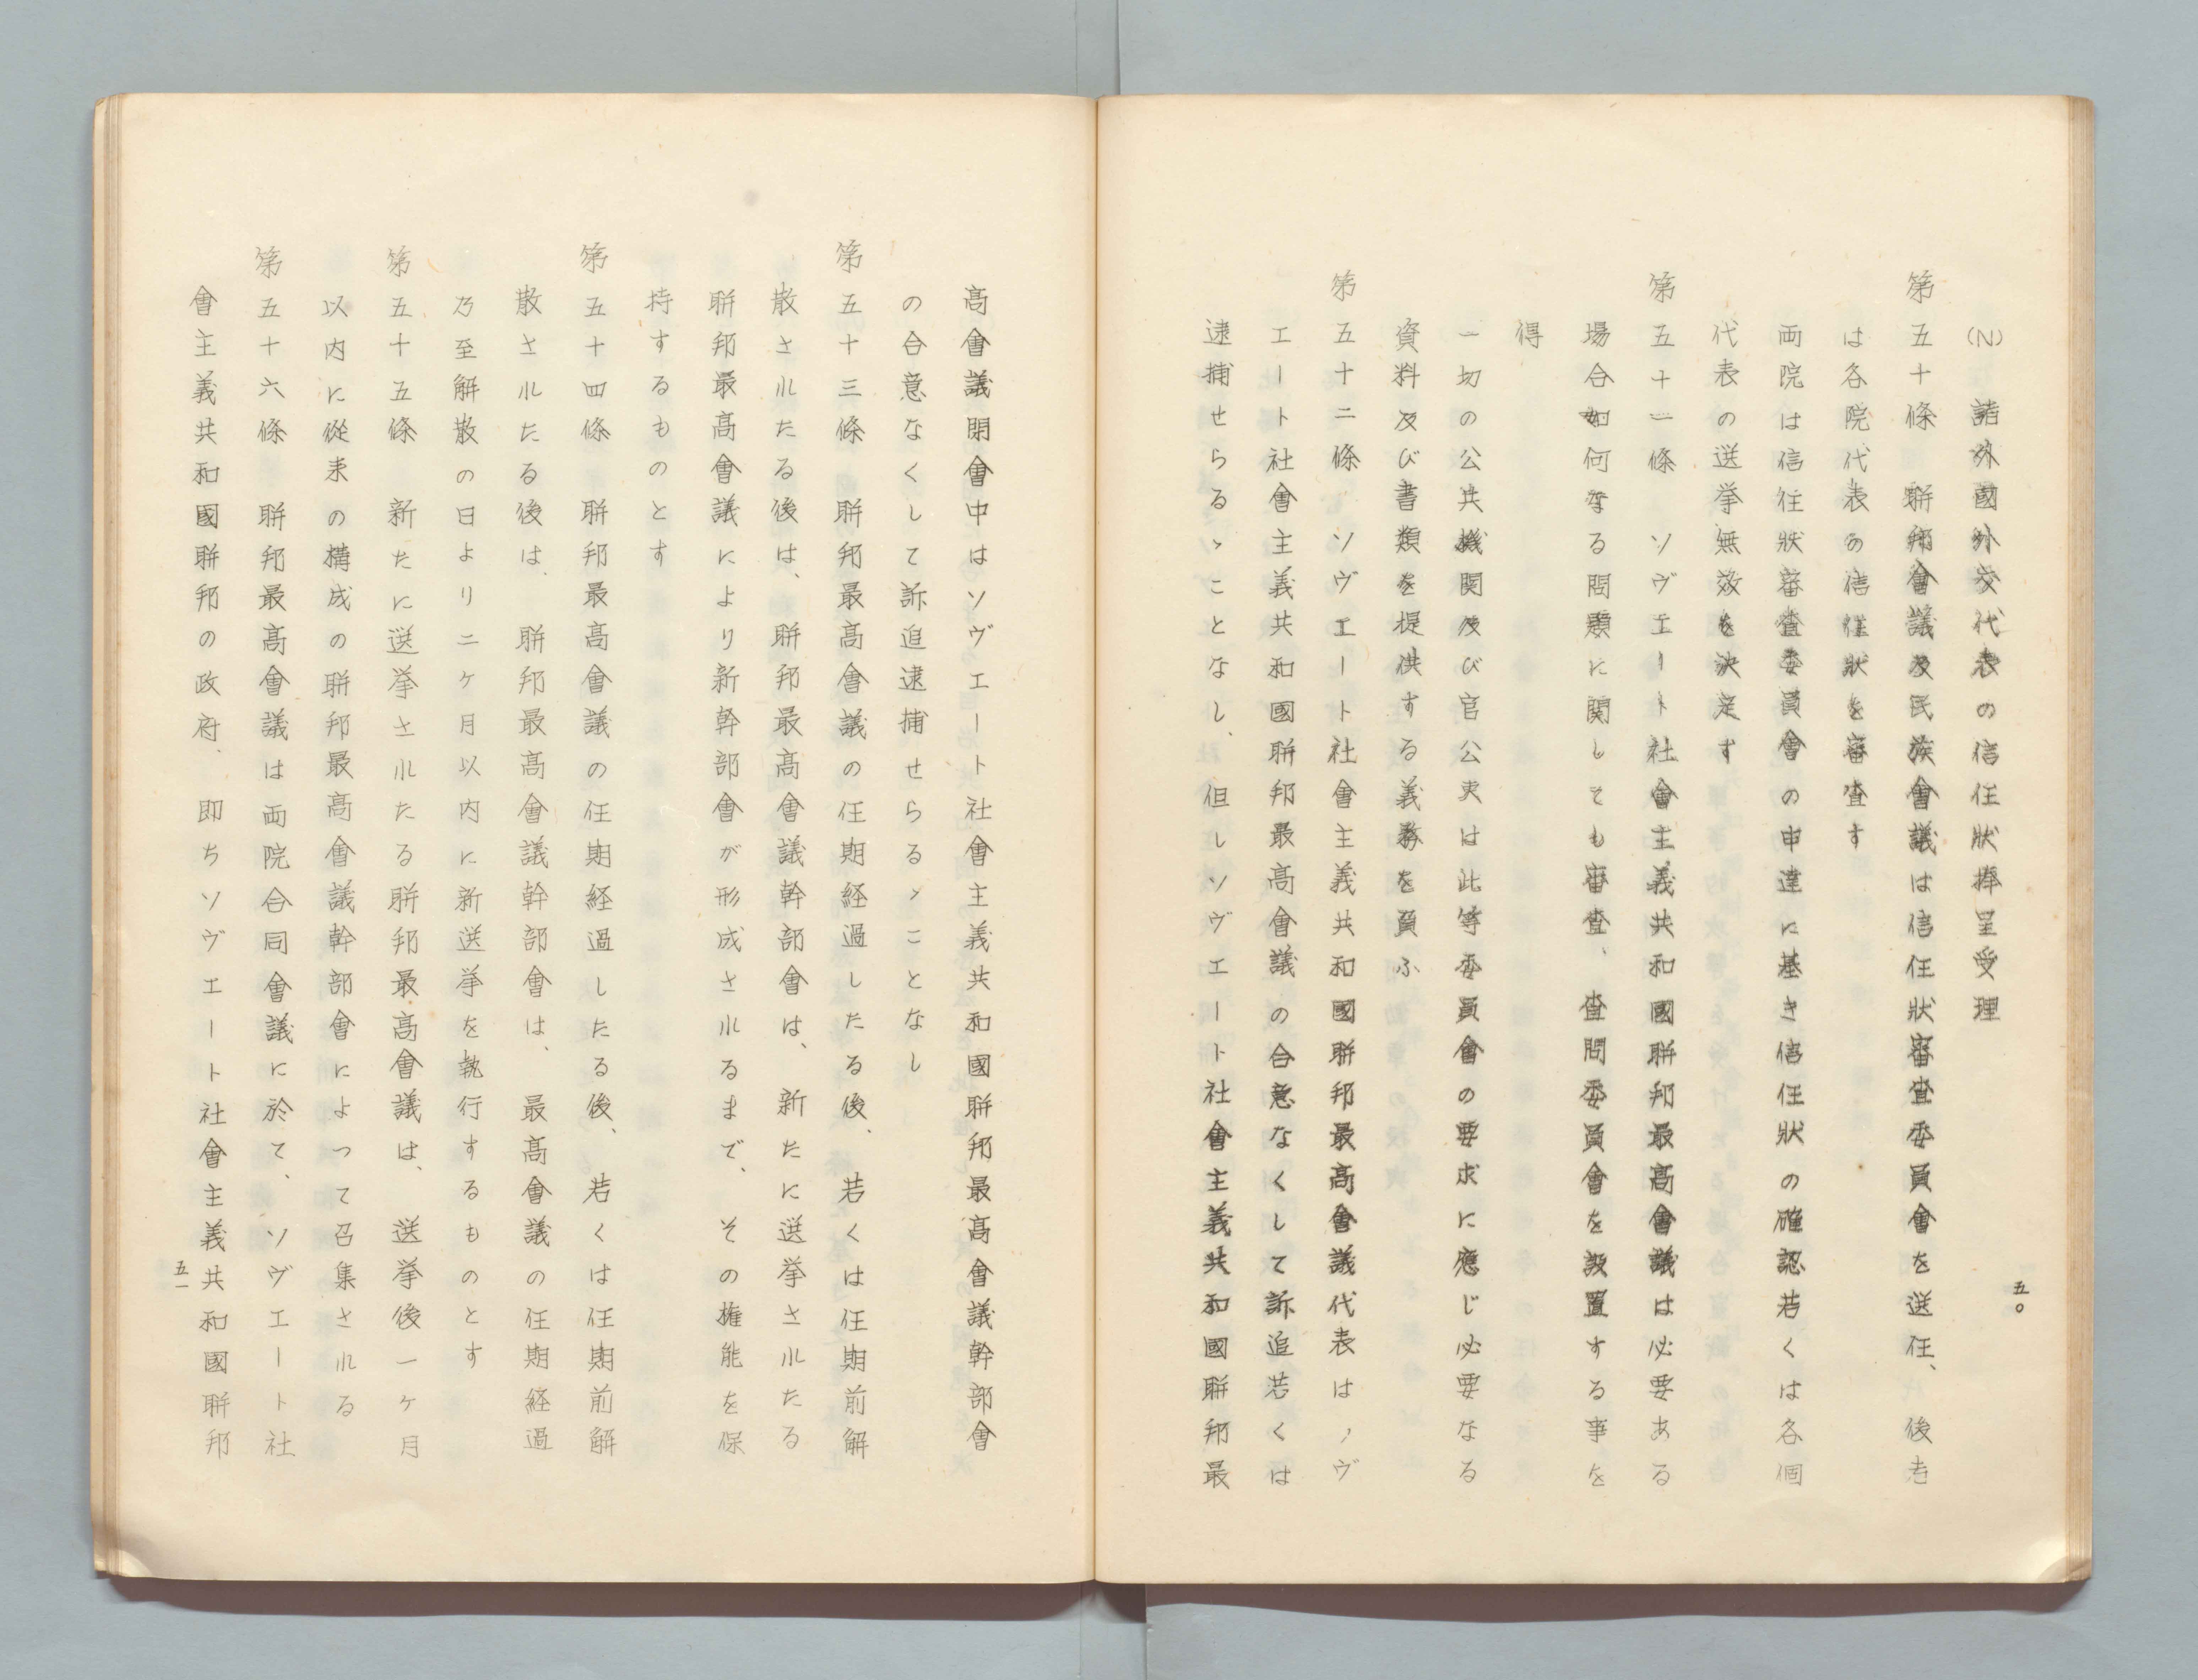 (N) 諸外國外交代表の信任狀捧呈受理
第五十條 聯邦會議及民族會議は信任狀審査委員會を選任、後者
は各院代表の信任狀を審査す
両院は信任狀審査委員會の申達に基き信任狀の確認若くは各個
代表の選挙無效を決定す
第五十一條 ソヴエート社會主義共和國聯邦最高會議は必要ある
場合如何なる問題に関しても審査、査問委員會を設置する事を
得
一切の公共機関及び官公吏は此等委員會の要求に應じ必要なる
資料及び書類を提供する義務を負ふ
第五十二條 ソヴエート社會主義共和國聯邦最高會議代表は、ソヴ
エート社會主義共和國聯邦最高會議の合意なくして訴追若くは
逮捕せらるゝことなし、但しソヴエート社會主義共和國聯邦最
五〇
高會議閉會中はソヴエート社會主義共和國聯邦最高會議幹部會
の合意なくして訴追逮捕せらるゝことなし
第五十三條 聯邦最高會議の任期経過したる後、若くは任期前解
散されたる後は、聯邦最高會議幹部會は、新たに選挙されたる
聯邦最高會議により新幹部會が形成されるまで、その権能を保
持するものとす
第五十四條 聯邦最高會議の任期経過したる後、若くは任期前解
散されたる後は、聯邦最高會議幹部會は、最高會議の任期経過
乃至解散の日より二ケ月以内に新選挙を執行するものとす
第五十五條 新たに選挙されたる聯邦最高會議は、選挙後一ケ月
以内に従来の構成の聯邦最高會議幹部會によつて召集される
第五十六條 聯邦最高會議は両院合同會議に於て、ソヴエート社
會主義共和國聯邦の政府、即ちソヴエート社會主義共和國聯邦
五一